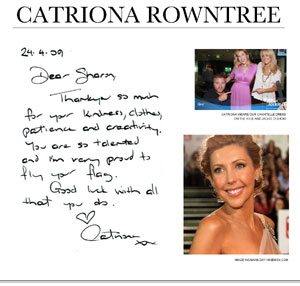 CATRIONA ROWNTREE
24.4.09
Dear Sharon,
Thankyou so much
for your kindness, clothes,
patience and creativity.
You are so talented
and I'm very proud to
fly your flag.
Good luck with all
that you do.
Catriona
xx
CATRIONA WEARS OUR CHANTELLE DRESS